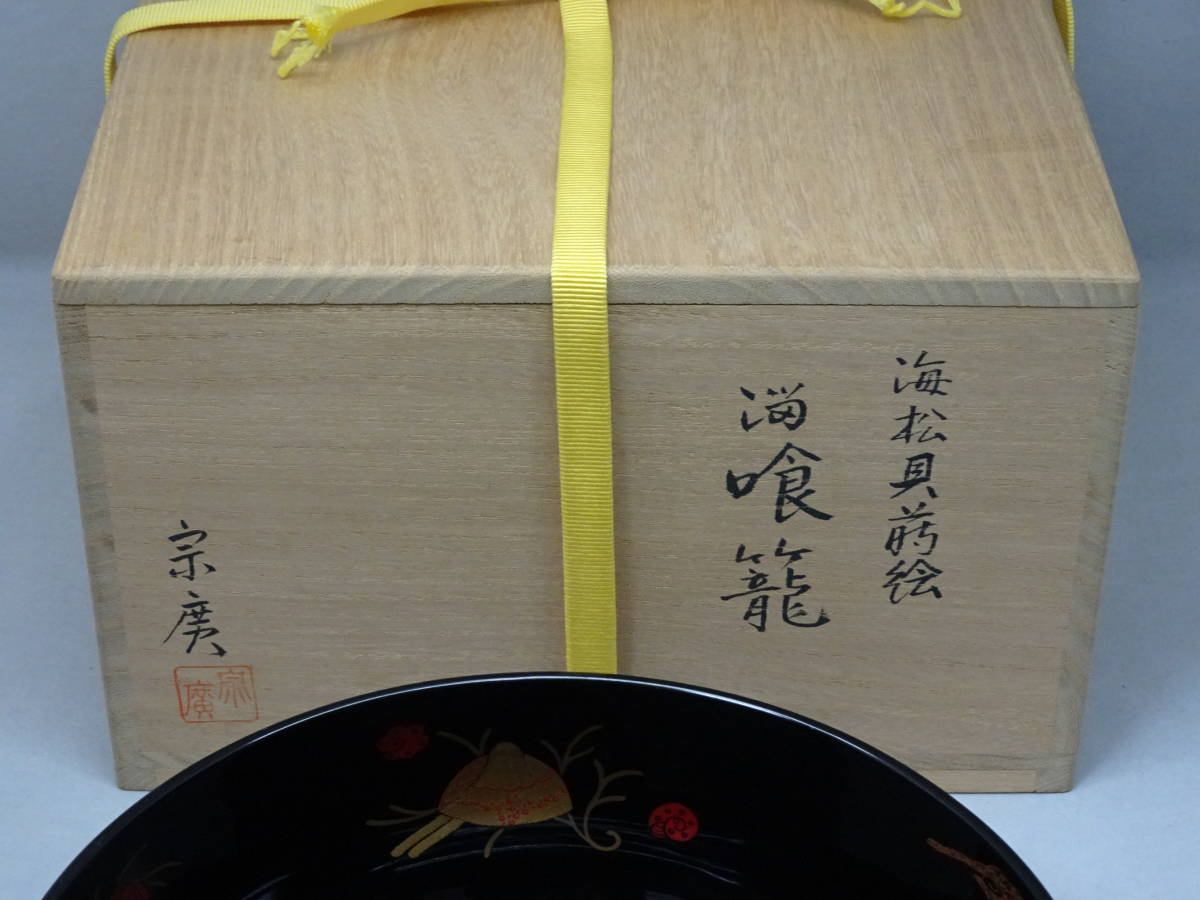 海松貝蒔絵
溜喰籠
宗廣
宗廣